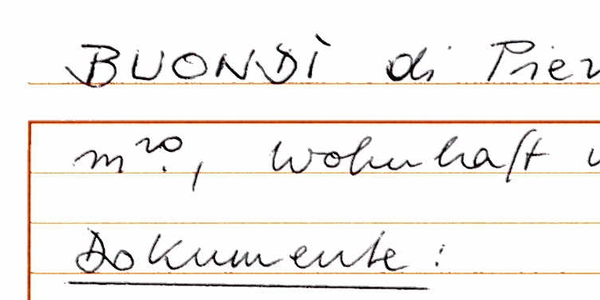 BUONDÌ di Pier
m.ro, wohnhaft
Dokumente: